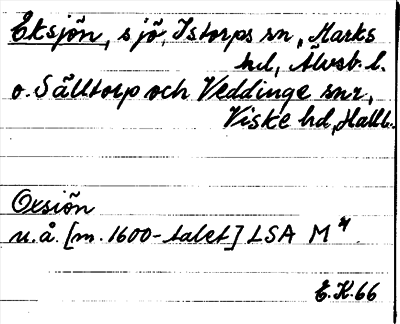 Eksjön, sjö, Istorps sn, Marks
hd, Älvsb. l.
o. Sälltorp och Veddinge snr,
Viske hd, Hall.
Oxsiön
u.å. [m. 1600-talet] LSA M
E.H.66